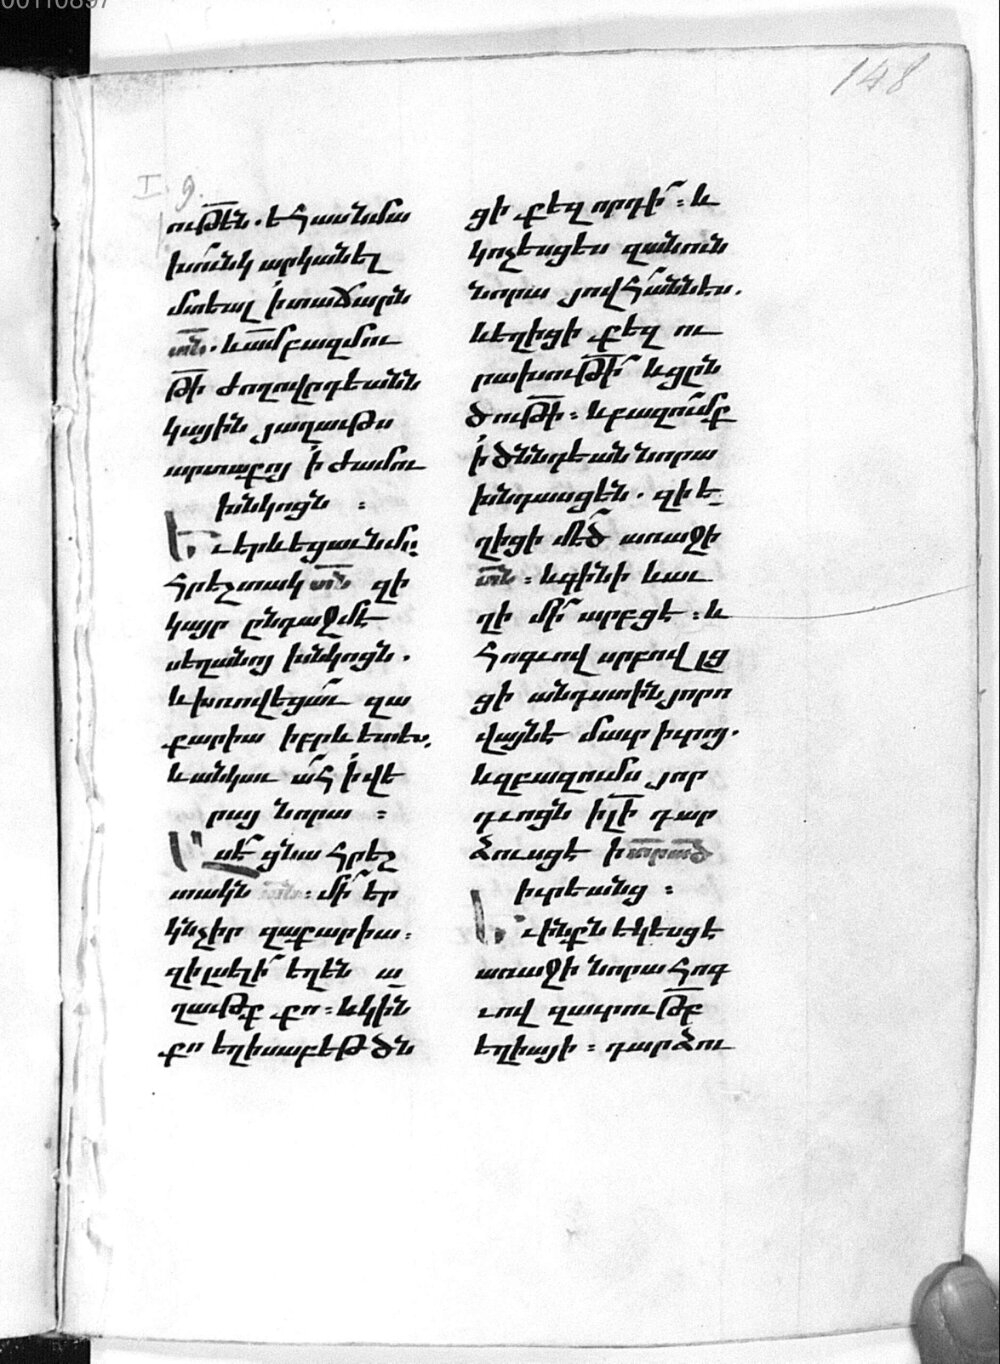 148
I 9.
ութէն. եհաս նմա
խունկ արկանել
մտեալ ի տաճարն
տն. և ամ բազմու
թի ժողովրդեանն
կային յաղաւթս
արտաքոյ ի ժամու
խնկոցն :
Եւ երևեցաւ նմա
հրեշտակ տն զի
կայր ընդ աջմէ
սեղանոյ խնկոցն.
և խռովեցաւ զա
քարիա իբրև ետես.
և անկաւ ահ ի վե
րայ նորա :
Ասէ ցնա հրեշ
տակն տն : մի եր
կնչիր զաքարիա :
զի լսելի եղեն ա
ղաւթք քո : և կին
քո եղիսաբեթ ծն
ցի քեզ որդի : և
կոչեսցես զանուն
նորա յովհաննէս.
և եղիցի քեզ ու
րախութի և ցըն
ծութի : և բազումք
ի ծննդեան նորա
խնդասցեն. զի ե
ղիցի մեծ առաջի
տն : և գինի և աւ
ղի մի արբցէ : և
հոգւով սրբով լց
ցի անդստին յորո
վայնէ մաւր իւրոյ.
և զբազումս յոր
դւոցն իլի դար
ձուսցէ ի տր ած
իւրեանց :
Եւ ինքն եկեսցէ
առաջի նորա հոգ
ւով զաւրութբ
եղիայի : դարձու